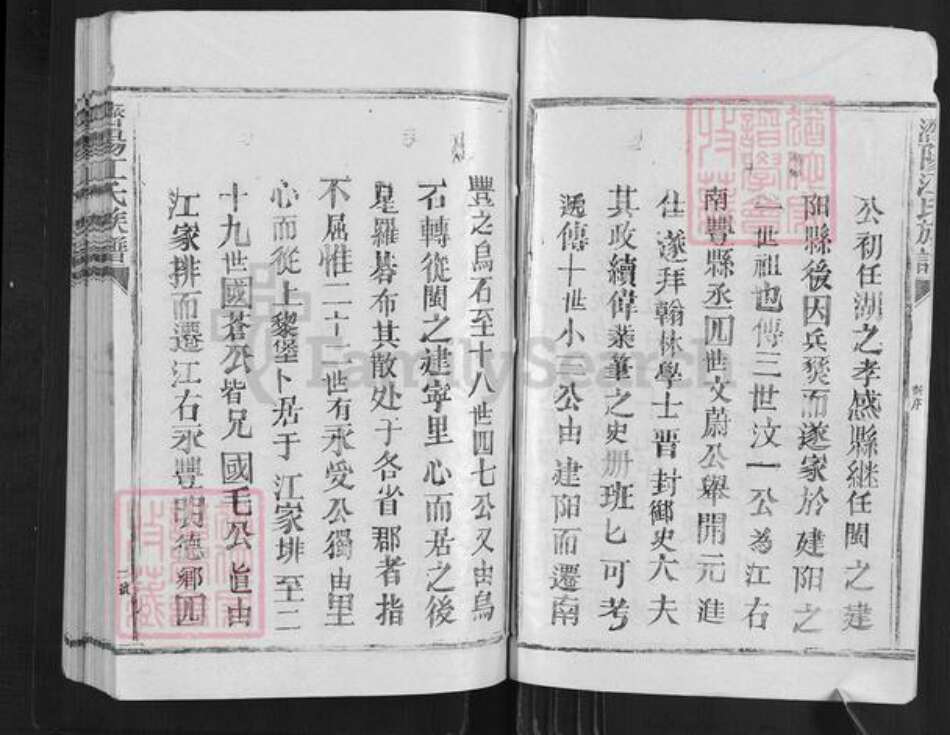 濟陽江氏族譜
新序
公初任湖之孝感縣継任閩之建
陽縣後因兵燹而遂家於建陽之
一世祖也傳三世汶一公為江右
南豐縣丞四世文蔚公舉開元進
仕遂拜翰林學士晋封御史大夫
其政績偉業筆之史册班匕可考
遞傳十世小一公由建陽而遷南
豐之烏石至十八世四七公又由烏
石轉從閩之建寧里心而居之後
星羅碁布其散处于各省郡者指
不屈惟二十一世有永受公獨由里
心而從上黎堡卜居于江家排至二
十九世國蒼公皆兄國毛公㫖由
江家排而遷江右永豐明德鄉四
濟陽江氏族譜
二號
FamilySearch